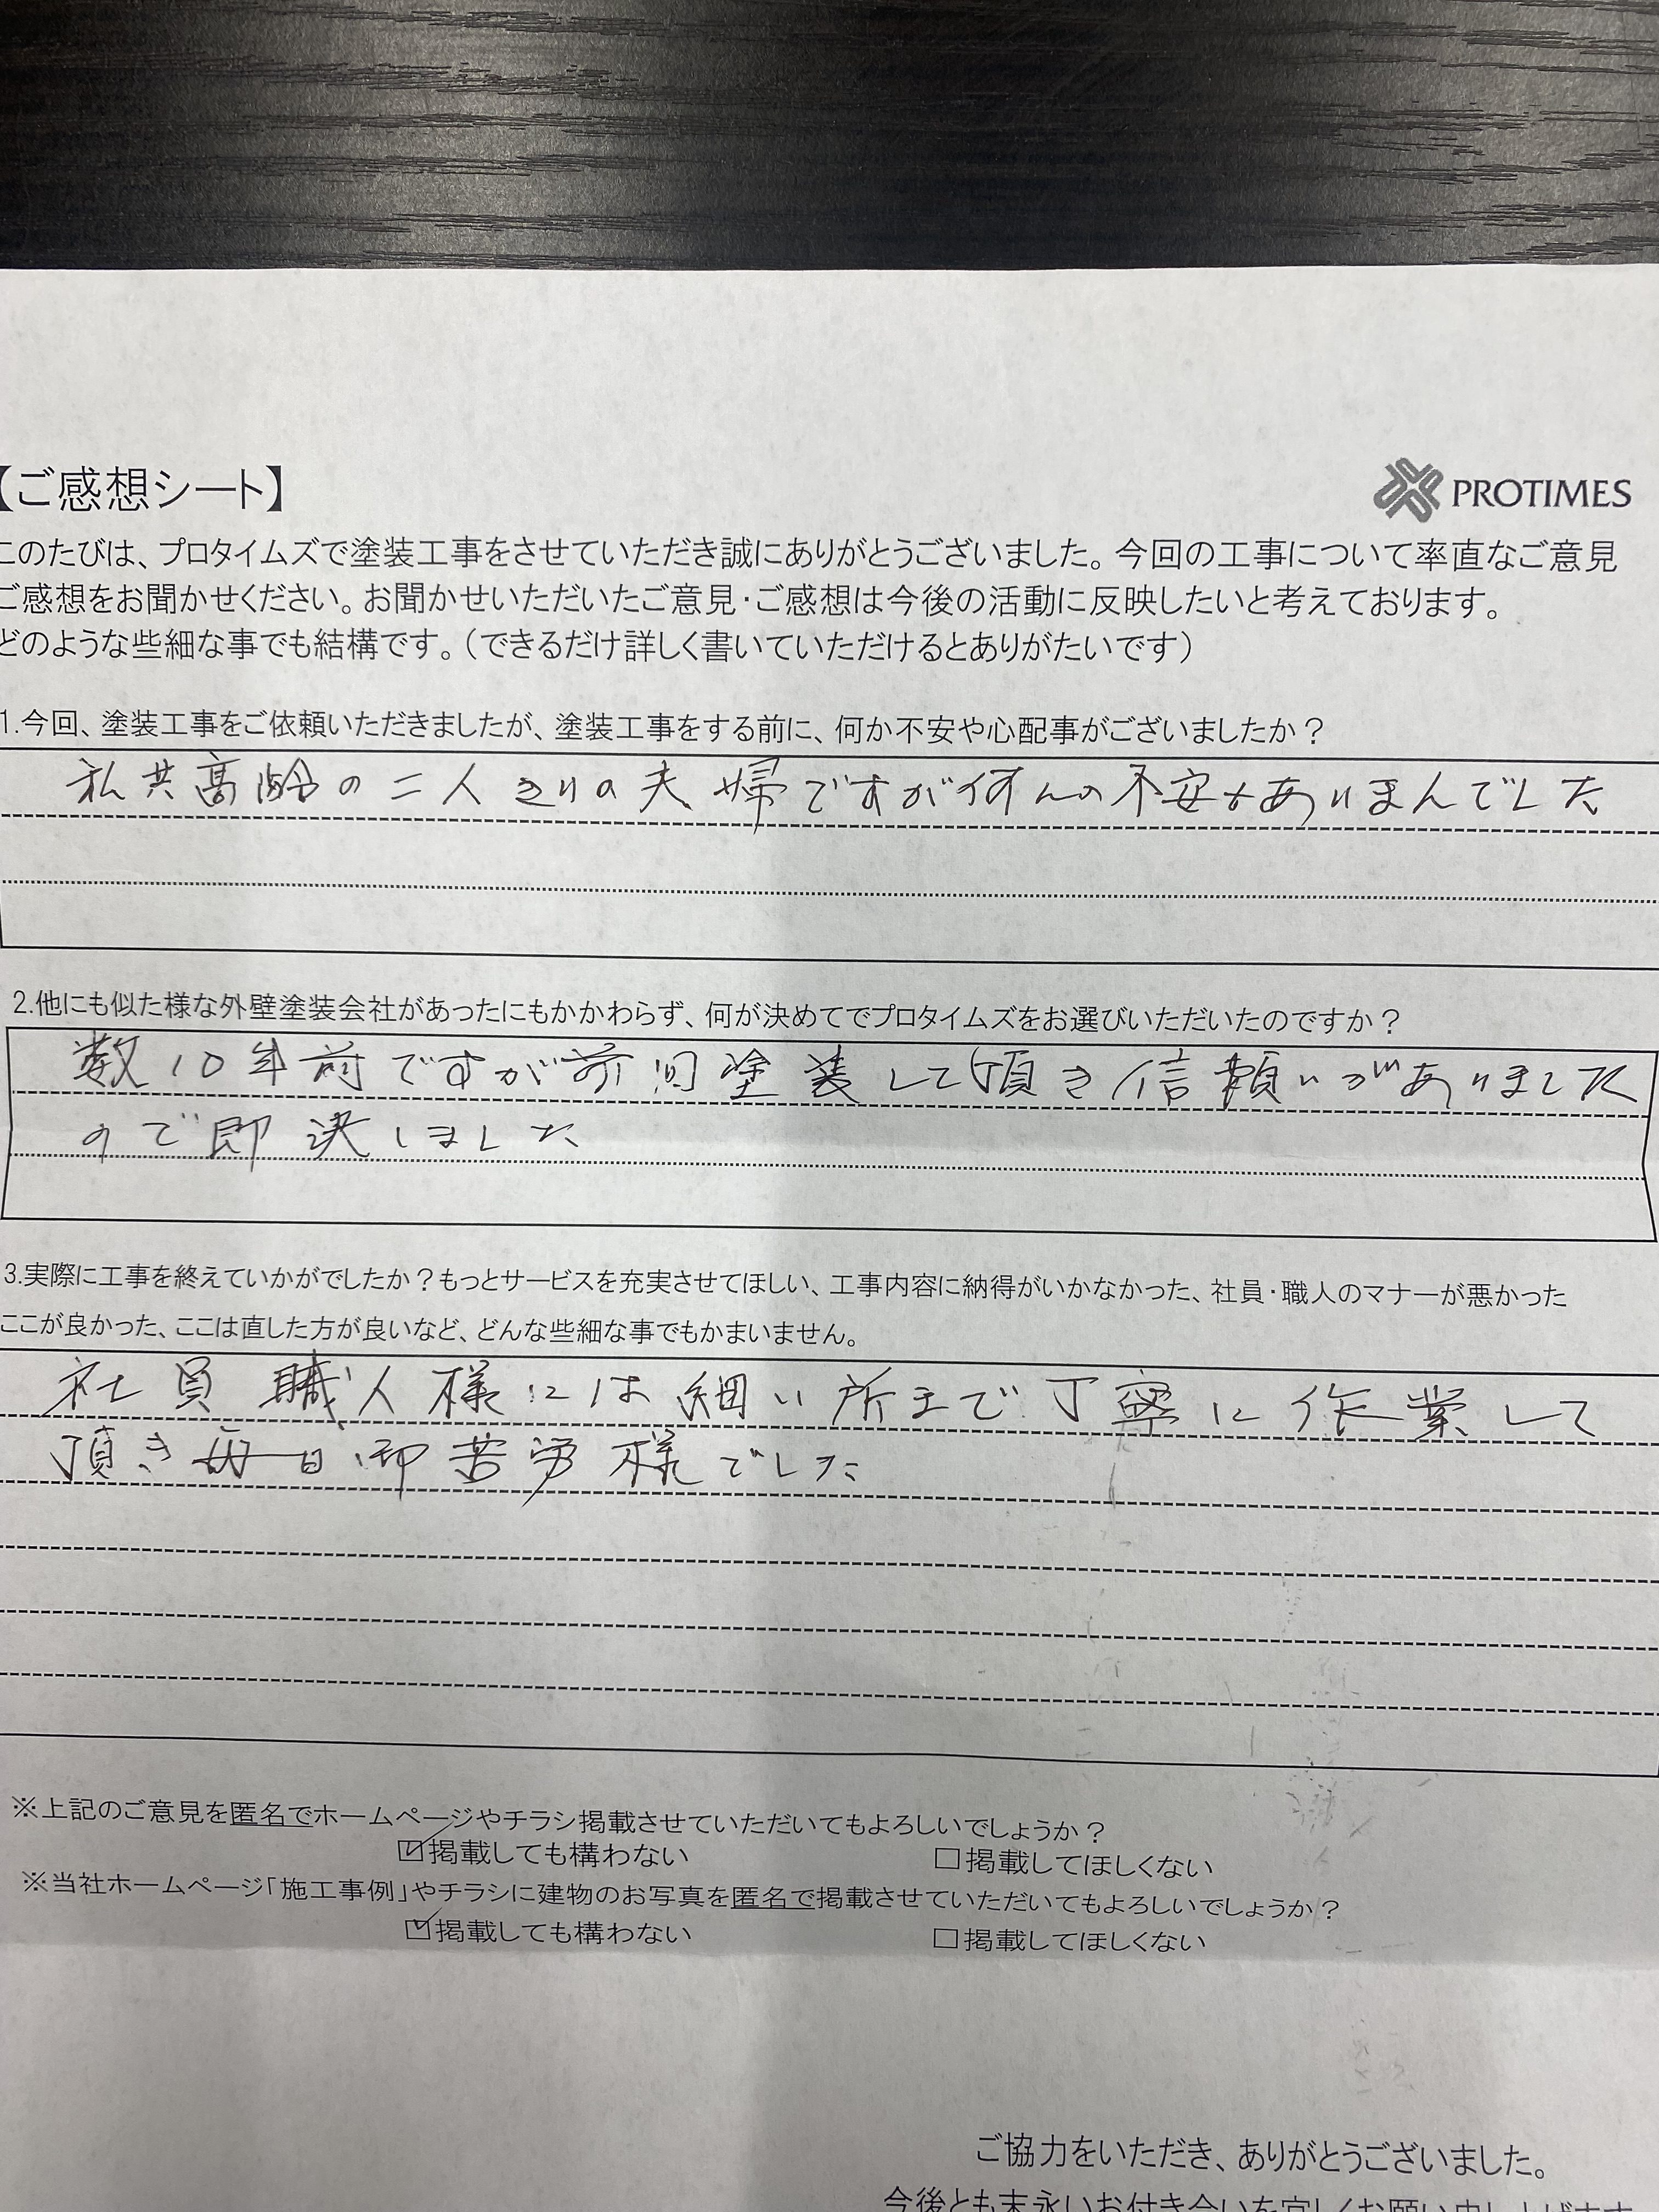 【ご感想シート】
PROTIMES
このたびは、プロタイムズで塗装工事をさせていただき誠にありがとうございました。今回の工事について率直なご意見
ご感想をお聞かせください。お聞かせいただいたご意見・ご感想は今後の活動に反映したいと考えております。
どのような些細な事でも結構です。（できるだけ詳しく書いていただけるとありがたいです）
1.今回、塗装工事をご依頼いただきましたが、塗装工事をする前に、何か不安や心配事がございましたか？
私共高齢の二人きりの夫婦ですが何んの不安もありまんでした
2.他にも似た様な外壁塗装会社があったにもかかわらず、何が決めてでプロタイムズをお選びいただいたのですか？
数10年前ですが前回塗装して頂き信頼いがありました
ので即決しました
3.実際に工事を終えていかがでしたか？もっとサービスを充実させてほしい、工事内容に納得がいかなかった、社員・職人のマナーが悪かった
ここが良かった、ここは直した方が良いなど、どんな些細な事でもかまいません。
社員職人様には細い所まで丁寧に作業して
頂き毎日御苦労様でした
※上記のご意見を匿名でホームページやチラシ掲載させていただいてもよろしいでしょうか？
☑掲載しても構わない ☐掲載してほしくない
※当社ホームページ「施工事例」やチラシに建物のお写真を匿名で掲載させていただいてもよろしいでしょうか？
☑掲載しても構わない ☐掲載してほしくない
ご協力をいただき、ありがとうございました。
今後とも末永いお付き合いを宜しくお願い申し上げます